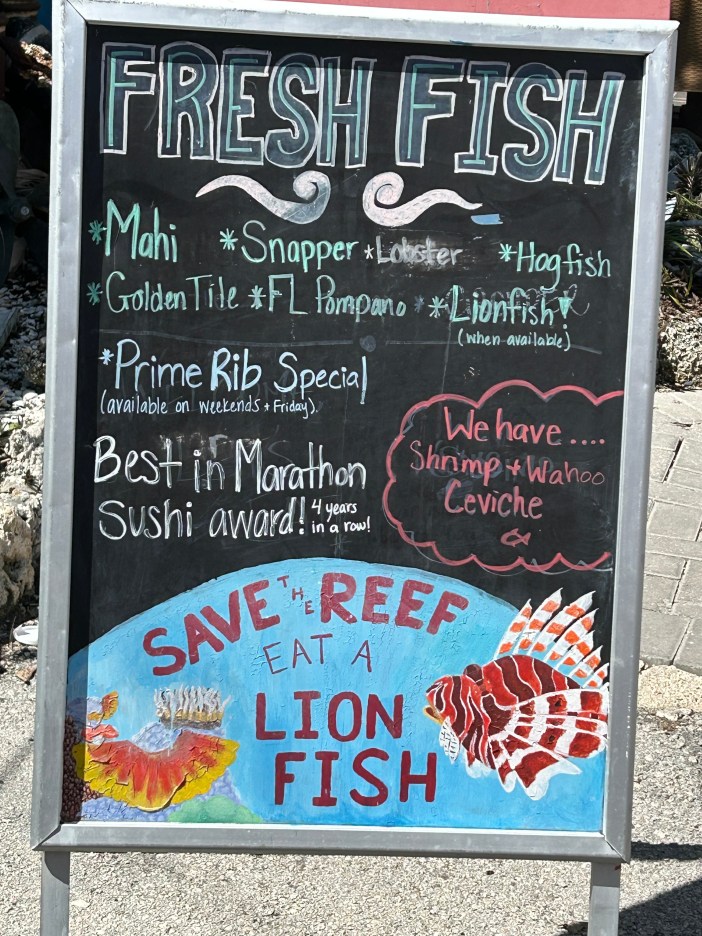 FRESH FISH
*Mahi *Snapper *Lobster *Hogfish
*Golden Tile *FL Pompano *Lionfish!
(when available)
*Prime Rib Special
(available on weekends + Friday).
Best in Marathon
Sushi award! 4 years
in a row!
We have ....
Shrimp + Wahoo
Ceviche
SAVE THE REEF
EAT A
LION
FISH